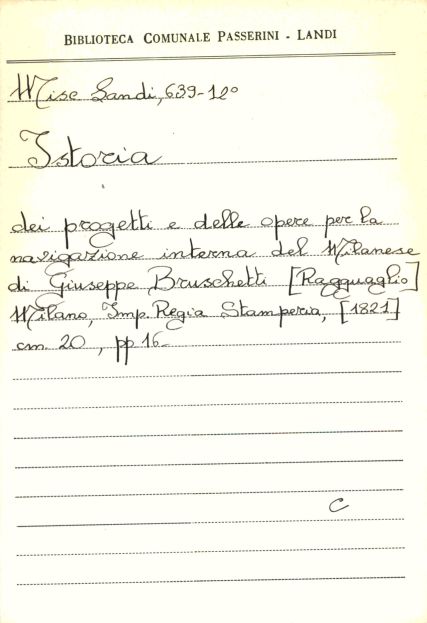 BIBLIOTECA COMUNALE PASSERINI - LANDI
Misc Landi, 639-12º
Istoria
dei progetti e delle opere per la
navigazione interna del Milanese
di Giuseppe Bruschetti [Ragguaglio]
Milano, Imp. Regia Stamperia, [1821]
cm 20, pp 16-
C